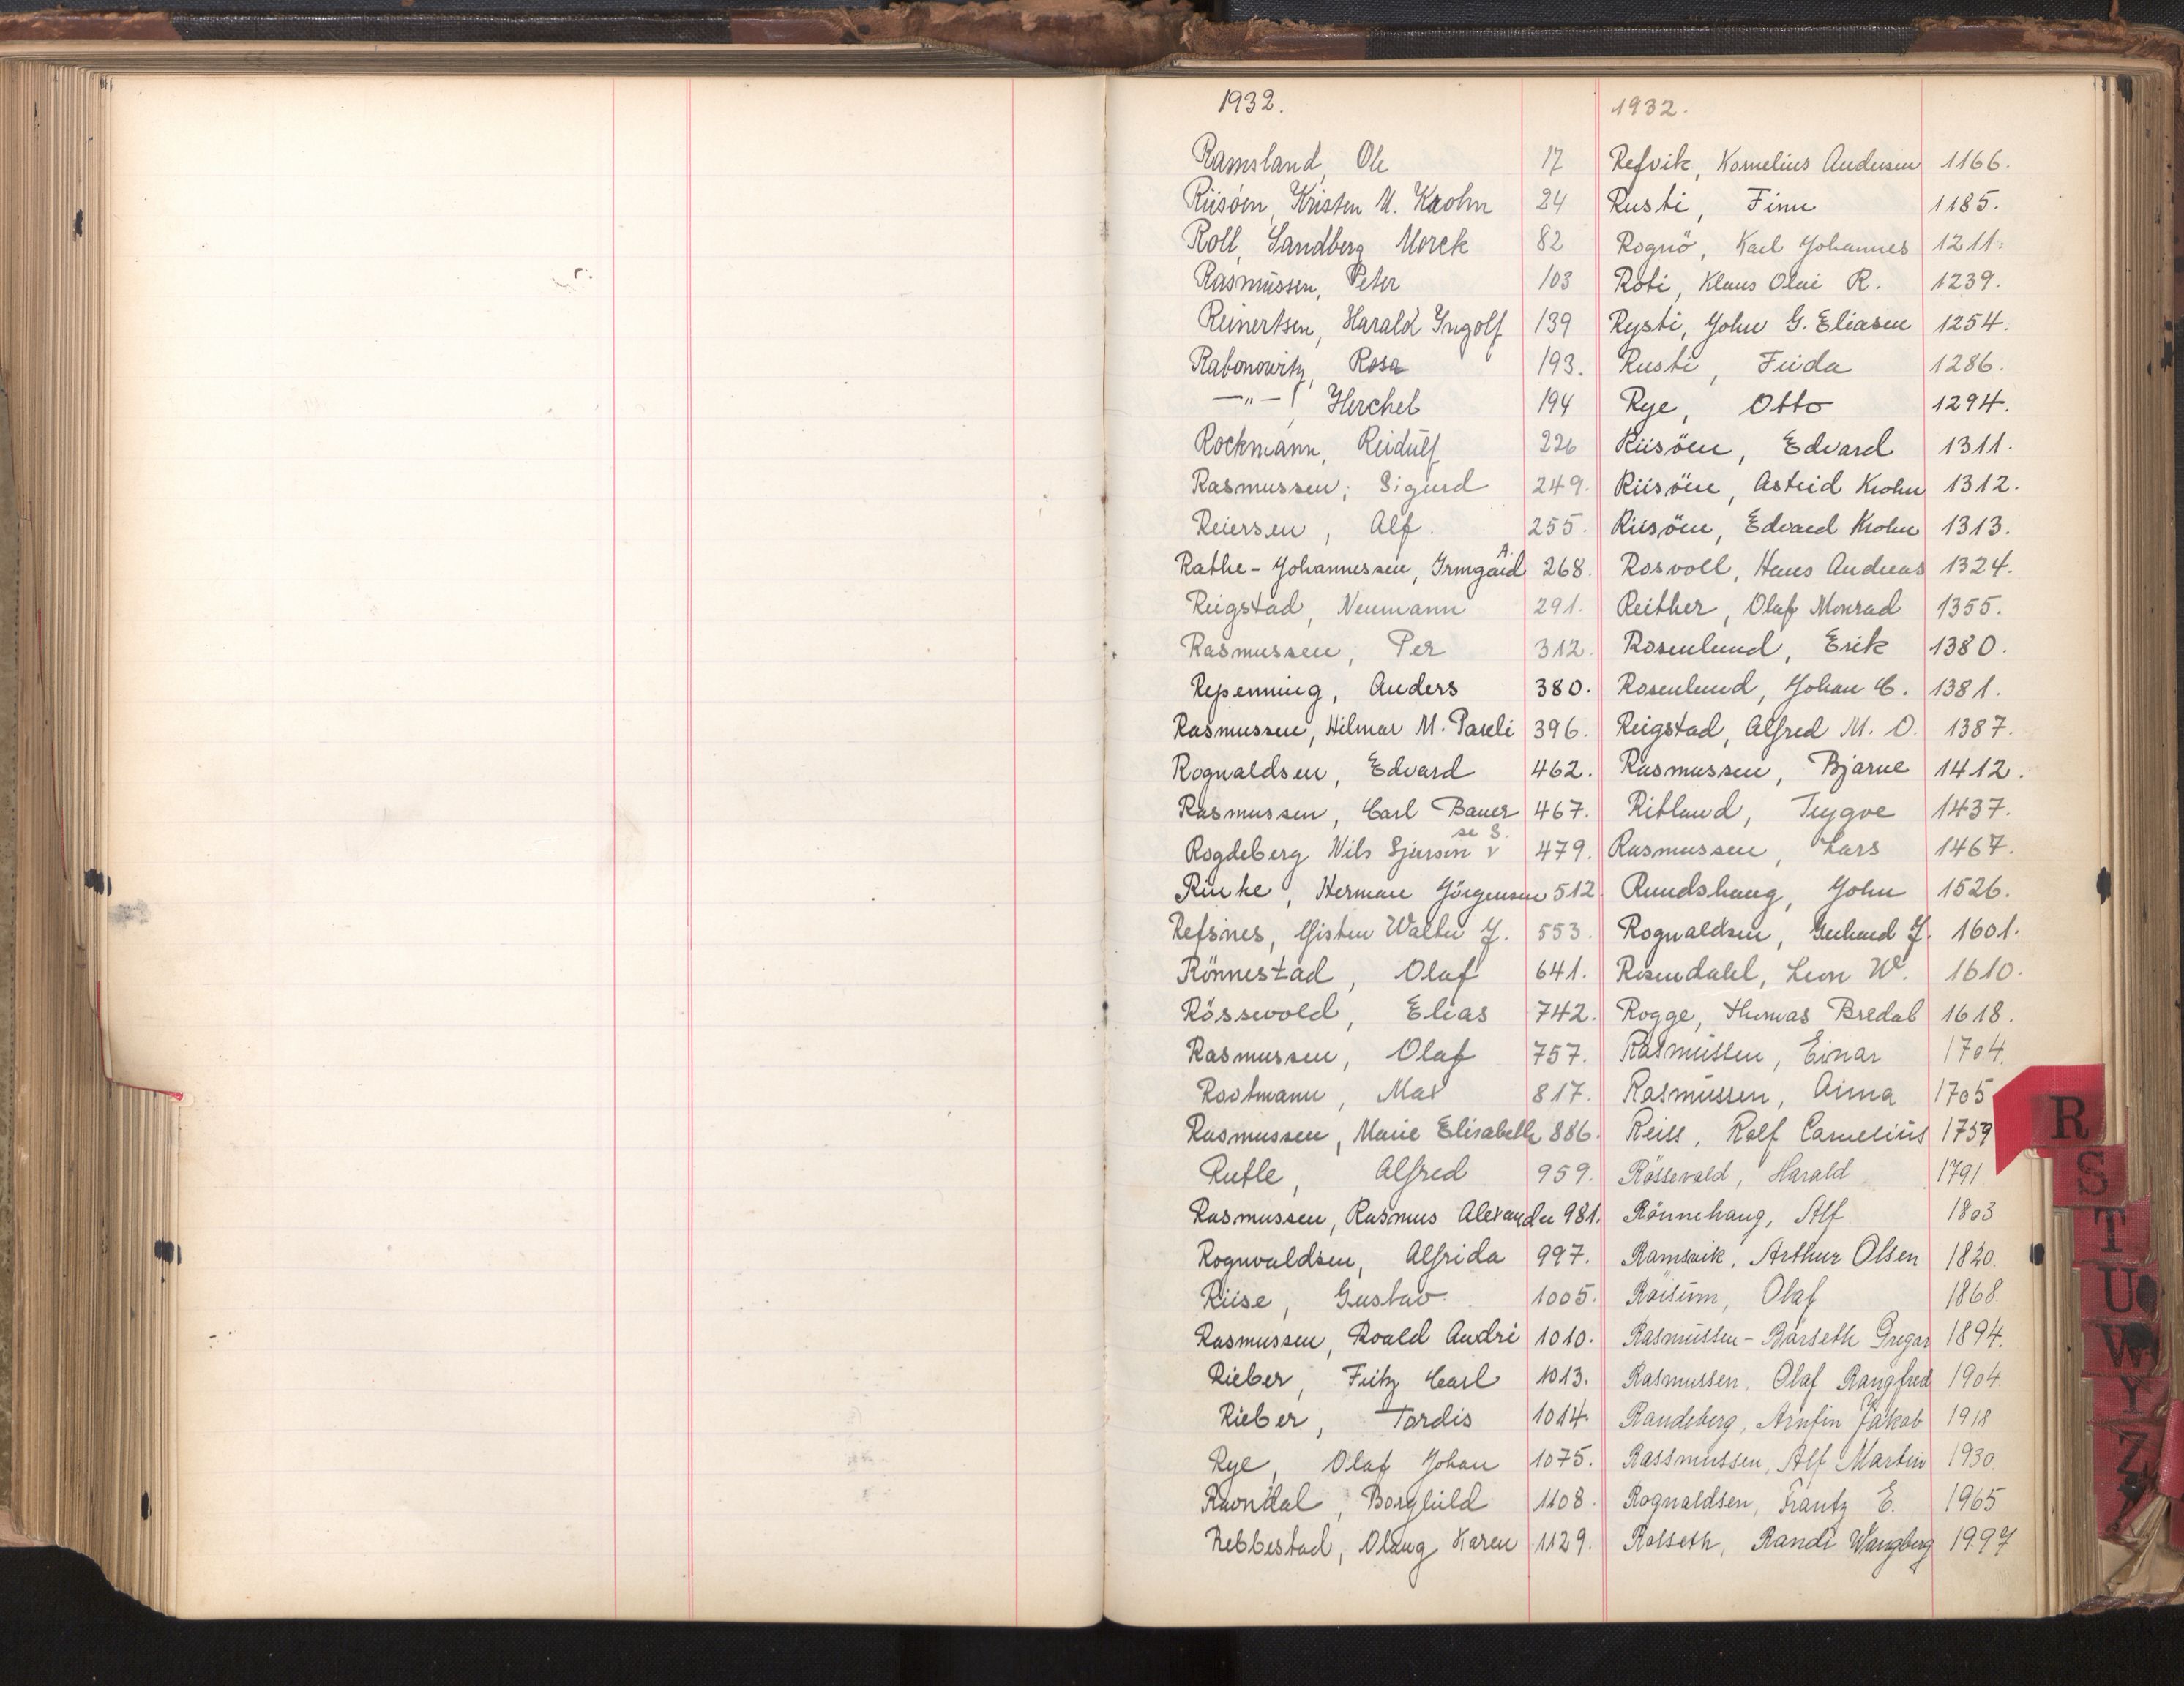 1932.
Ramsland, Ole 17
Riisöen, Kristen M. Krohn 24
Roll, Sandberg Morck 82
Rasmussen, Peter 103
Reinertsen, Harald Yngolf 139
Rabonowitz, Rosa 193.
—"— , Herchel 194
Rockmann, Reidulf 226
Rasmussen, Sigurd 249.
Reiersen, Alf. 255.
Rathe-Johannessen, Irmgard A. 268.
Reigstad, Neumann 291.
Rasmussen, Per 312.
Repenning, Anders 380.
Rasmussen, Hilmar M. Pareli 396.
Rognaldsen, Edvard 462.
Rasmussen, Carl Bauer 467.
se S.
Rogdeberg Nils Sjursen v 479.
Rinke, Herman Jörgensen 512.
Refsnes, Walter J. 553.
Rönnestad, Olaf 641.
Rössevold, Elias 742.
Rasmussen, Olaf 757.
Rootmann, Max 817.
Rasmussen, Marie Elisabeth 886.
Rutle, Alfred 959.
Rasmussen, Rasmus Alexander 981.
Rognvaldsen, Alfrida 997.
Riise, Gustav 1005.
Rasmussen, Roald André 1010.
Rieber, Fritz Carl 1013.
Rieber, Tordis 1014.
Rye, Olaf Johan 1075.
Ravndal, Borghild 1108.
Rebbestad, Olaug Karen 1129.
1932.
Refvik, Kornelius Andersen 1166.
Rusti, Finn 1185.
Rognö, Karl Johannes 1211.
Roti, Klaus Olai R. 1239.
Rysti, John G. Eliasen 1254.
Rusti, Frida 1286.
Rye, Otto 1294.
Riisöen, Edvard 1311.
Riisöen, Astrid Krohn 1312.
Riisöen, Edvard Krohn 1313.
Rosvoll, Hans Andreas 1324.
Reither, Olaf Monrad 1355.
Rosenlund, Erik 1380.
Rosenlund, Johan C. 1381.
Reigstad, Alfred M. O. 1387.
Rasmussen, Bjarne 1412.
Ritland, Trygve 1437.
Rasmussen, Lars 1467.
Rundshaug, John 1526.
Rognaldsen, Gerhard J. 1601.
Rosendahl, Leon W. 1610.
Rogge, Thomas Bredal 1618.
Rasmussen, Einar 1704.
Rasmussen, Anna 1705
Reiss, Rolf Cornelius 1759
Rössevold, Harald 1791
Rönnehaug, Alf 1803
Ramsvik, Arthur Olsen 1820.
Röisum, Olaf 1868.
Rasmussen-Börseth Gregar 1894.
Rasmussen, Olaf Rangfred 1904.
Randeberg, Arnfin Jakob 1918
Rassmussen, Alf Martin 1930.
Rognaldsen, Frantz E. 1965
Rolseth, Randi Wangberg 1997
R
S
T
U
W
Y
Z